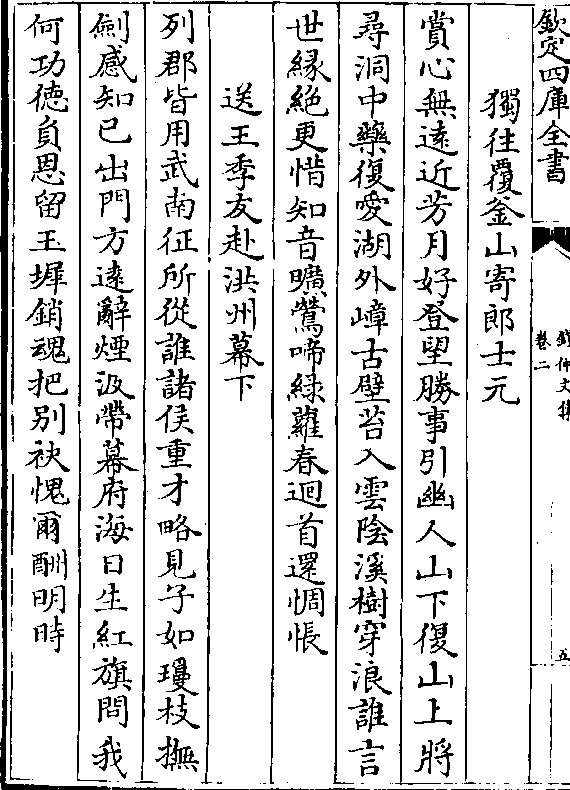 欽定四庫全書
錢仲文集
卷二
五
獨往覆釜山寄郎士元
賞心無遠近芳月好登望勝事引幽人山下復山上將
尋洞中藥復愛湖外嶂古壁苔入雲陰溪樹穿浪誰言
世緣絶更惜知音曠鶯啼緑蘿春迴首還惆悵
送王季友赴洪州幕下
列郡皆用武南征所從誰諸侯重才略見子如瓊枝撫
劍感知已出門方逺辭煙波帶幕府海日生紅旗問我
何功徳負恩留玉墀銷魂把别袂愧爾酬明時